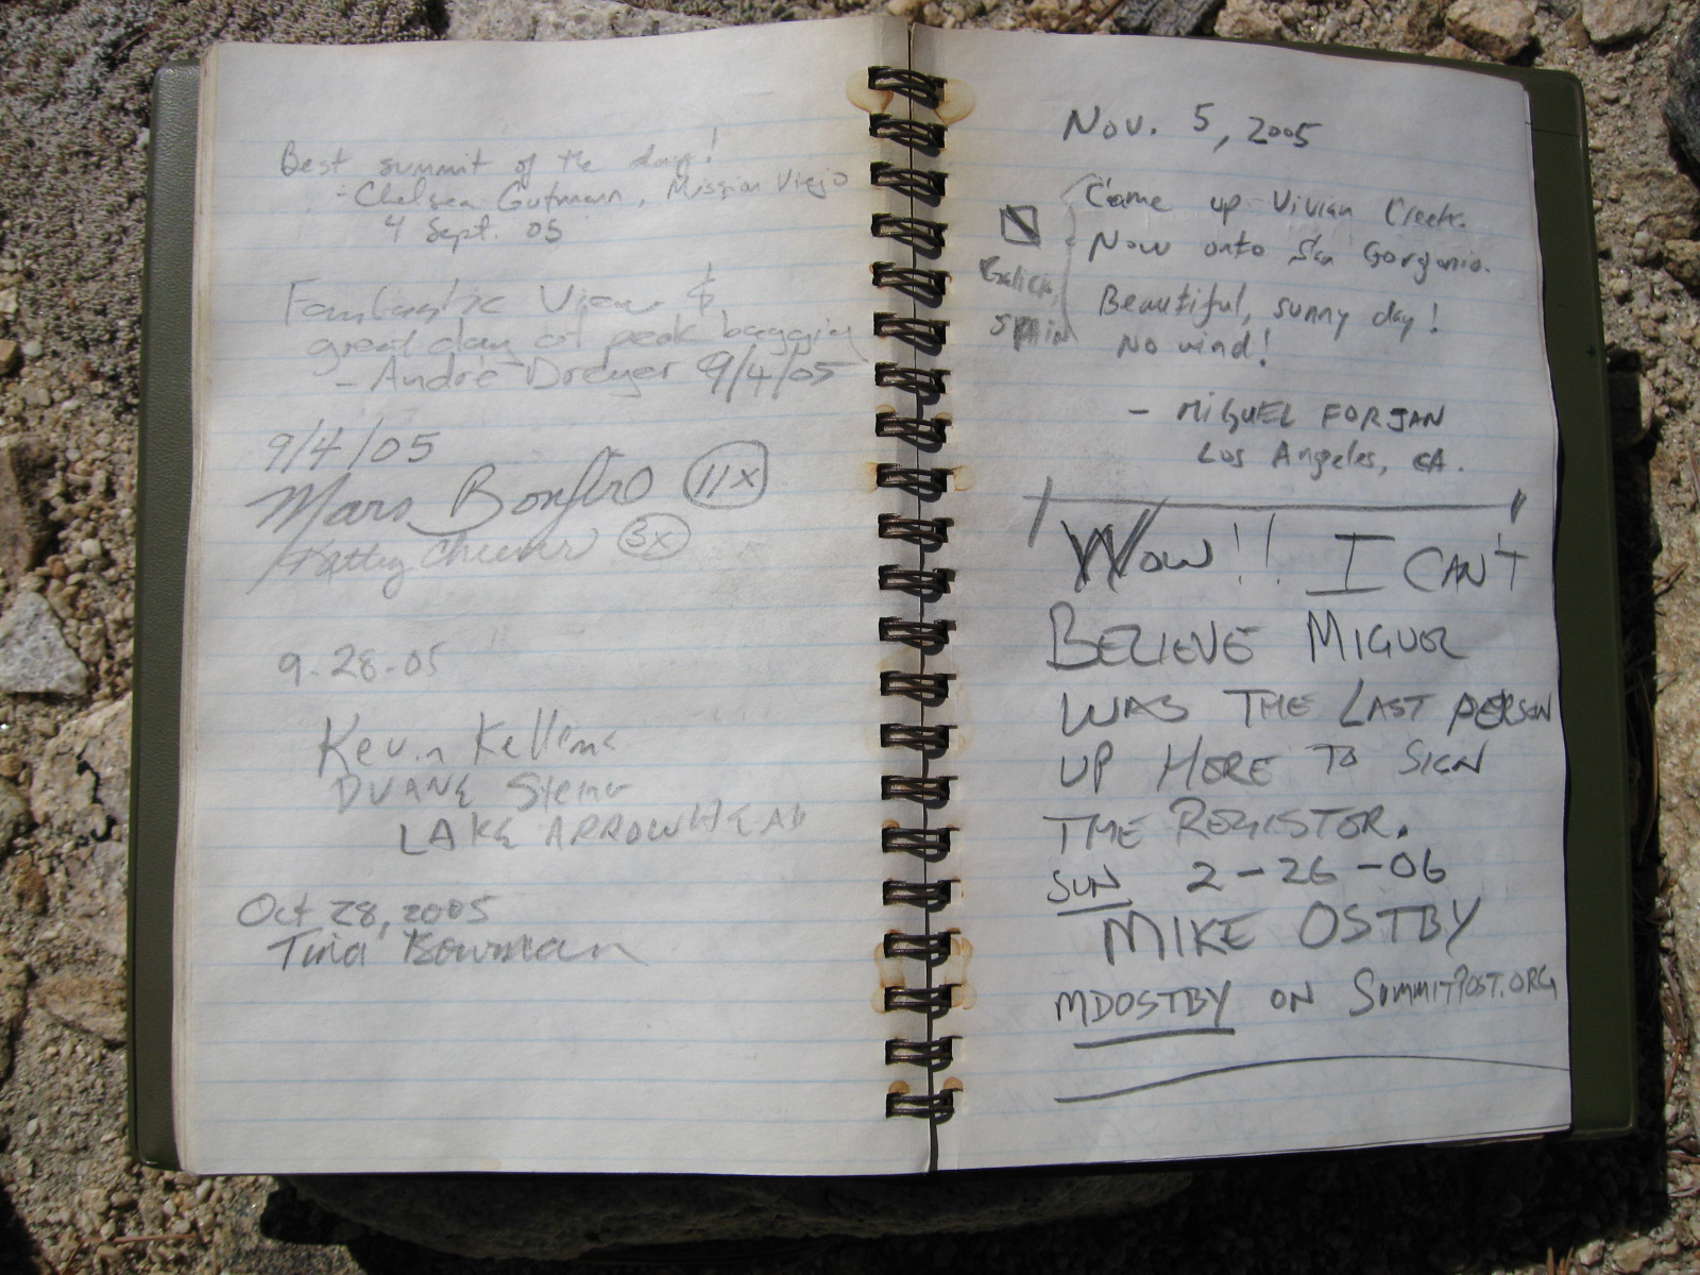 Best summit of the day!
- Chelsea Gutmann, Mission Viejo
4 Sept. 05
Fantastic View &
great day of peak bagging
- André Dreyer 9/4/05
9/4/05
Mars Bonfire 11x
Kathy Cheever 3x
9-28-05
Kevin
DUANE
LAKE ARROWHEAD
Oct 28, 2005
Tina Bowman
Nov. 5, 2005
Came up Vivian Creek.
Now onto San Gorgonio.
Galicia,
Spain
Beautiful, sunny day!
No wind!
- MIGUEL FORJAN
Los Angeles, CA.
WOW!! I CAN'T
BELIEVE MIGUEL
WAS THE LAST PERSON
UP HERE TO SIGN
THE REGISTER.
SUN 2-26-06
MIKE OSTBY
MDOSTBY ON SUMMITPOST.ORG